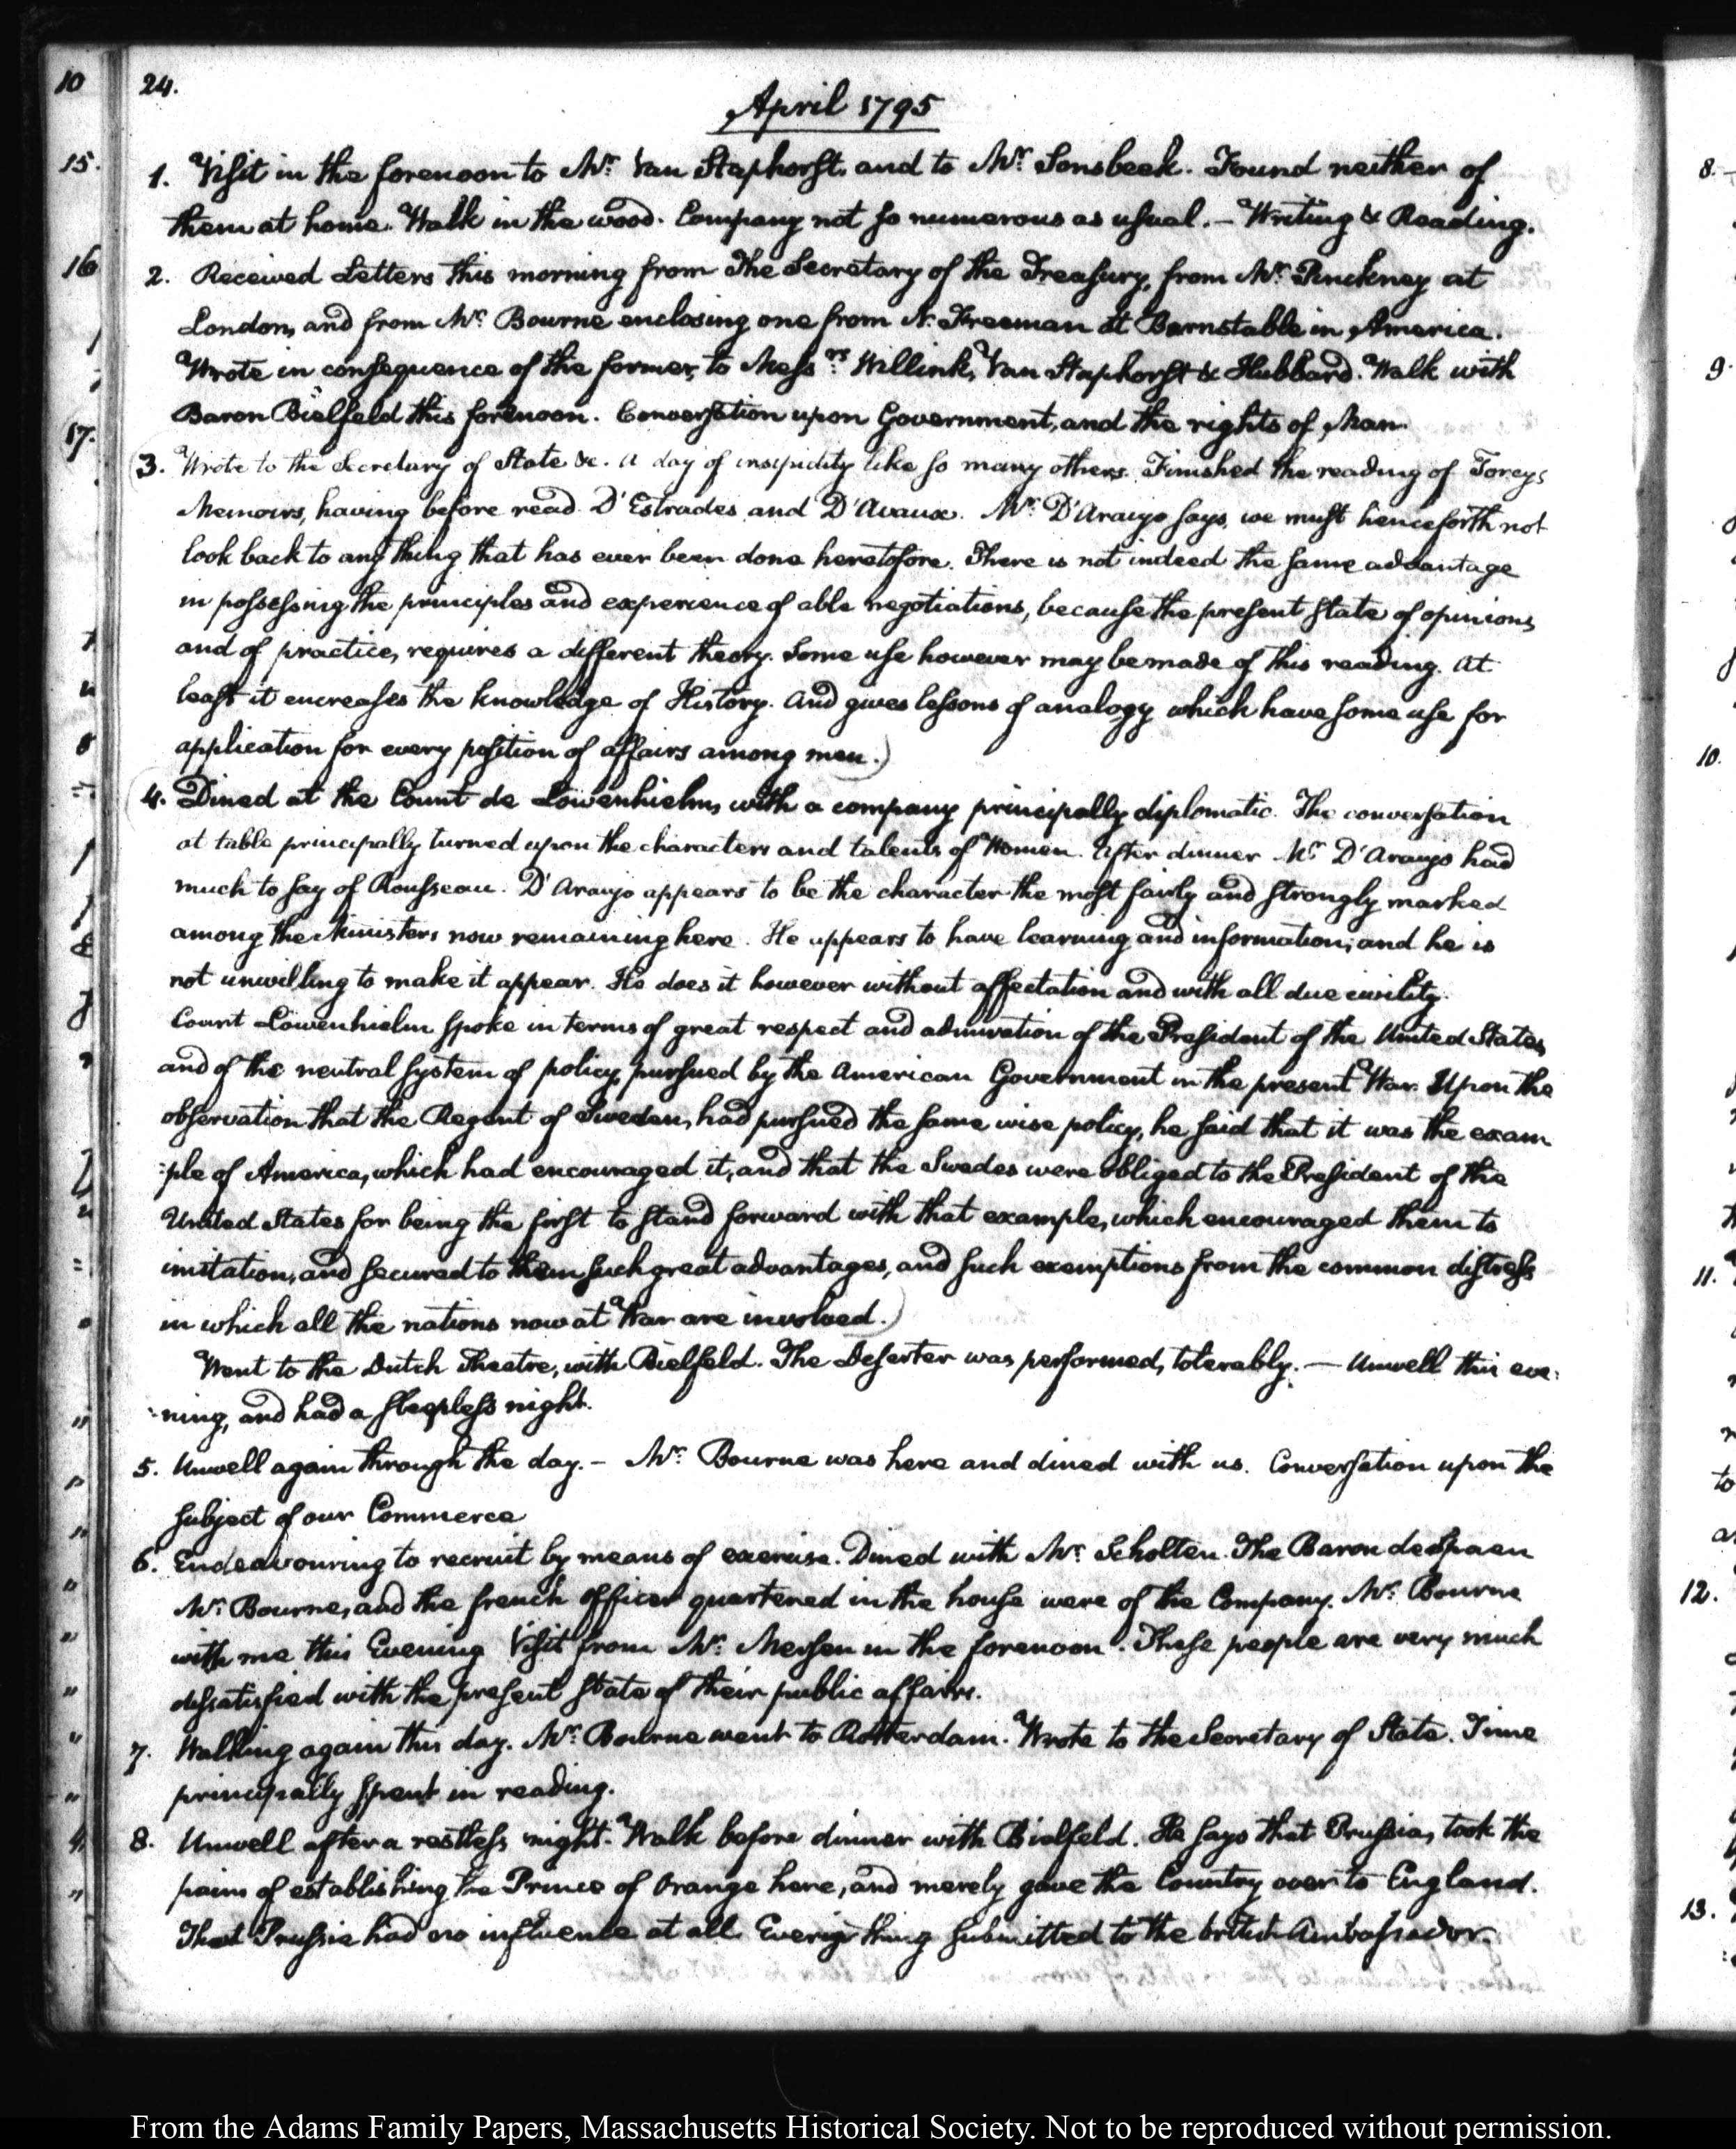 24.
April 1795
1. Visit in the forenoon to Mr. Van Staphorst, and to Mr. Sonsbeek. Found neither of
them at home. Walk in the wood. Company not so numerous as usual. — Writing & Reading.
2. Received Letters this morning from The Secretary of the Treasury, from Mr. Pinckney at
London, and from Mr. Bourne enclosing one from N. Freeman at Barnstable in America.
Wrote in consequence of the former, to Messrs. Willink, Van Staphorst & Hubbard. Walk with
Baron Bielfeld this forenoon. Conversation upon Government, and the rights of Man.
3. Wrote to the Secretary of State &c. A day of insipidity like so many others. Finished the reading of Torcys
Memoirs, having before read D'Estrades and D'Avaux. Mr. D'Araujo says, we must henceforth not
look back to any thing that has ever been done heretofore. There is not indeed the same advantage
in possessing the principles and experience of able negotiations, because the present state of opinions,
and of practice, requires a different theory. Some use however may be made of this reading. At
least it encreases the knowledge of History. And gives lessons of analogy which have some use for
application for every position of affairs among men.)
4. Dined at the Count de Löwenhielm, with a company principally diplomatic. The conversation
at table principally turned upon the characters and talents of Women. After dinner Mr. D'Araujo had
much to say of Rousseau. D'Araujo appears to be the character the most fairly and strongly marked
among the Ministers now remaining here. He appears to have learning and information; and he is
not unwilling to make it appear. He does it however without affectation and with all due civility.
Count Löwenhielm spoke in terms of great respect and admiration of the President of the United States,
and of the neutral system of policy, pursued by the American Government in the present War. Upon the
observation that the Regent of Sweden, had pursued the same wise policy, he said that it was the exam
:ple of America, which had encouraged it, and that the Swedes were obliged to the President of the
United States for being the first to stand forward with that example, which encouraged them to
imitation, and secured to them such great advantages, and such exemptions from the common distress
in which all the nations now at War are involved.)
Went to the Dutch Theatre, with Bielfeld. The Deserter was performed, tolerably. — Unwell this eve:
:ning, and had a sleepless night.
5. Unwell again through the day. — Mr. Bourne was here and dined with us. Conversation upon the
subject of our Commerce
6. Endeavouring to recruit by means of exercise. Dined with Mr. Scholten. The Baron de Spaen
Mr. Bourne, and the french officer quartered in the house were of the Company. Mr. Bourne
with me this Evening Visit from Mr. Mersen in the forenoon. These people are very much
dissatisfied with the present state of their public affairs.
7. Walking again this day. Mr. Bourne went to Rotterdam. Wrote to the Secretary of State. Time
principally spent in reading.
8. Unwell after a restless night. Walk before dinner with Bielfeld. He says that Prussia, took the
pains of establishing the Prince of Orange here, and merely gave the Country over to England.
That Prussia had no influence at all. Every thing submitted to the british Ambassador.
10
15.
16
17.
8.
9.
10.
11.
12.
13.
From the Adams Family Papers, Massachusetts Historical Society. Not to be reproduced without permission.